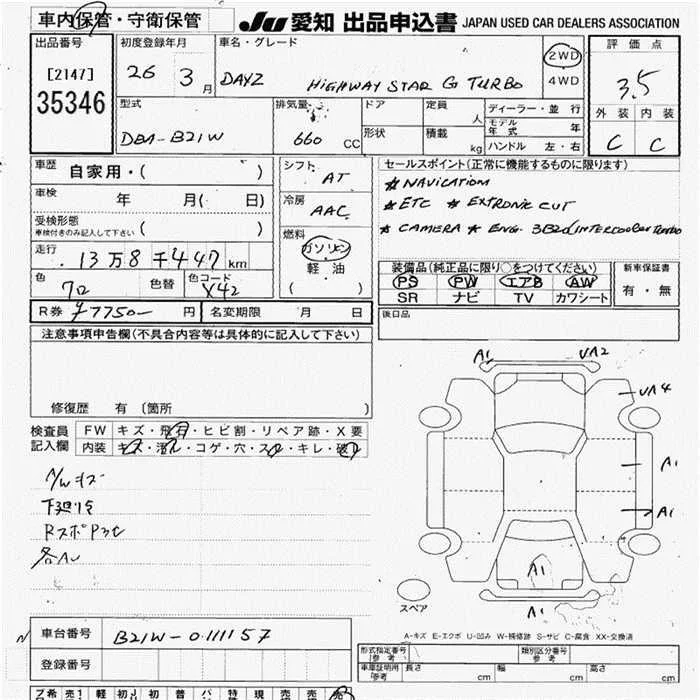 車内保管・守衛保管
JU 愛知 出品申込書 JAPAN USED CAR DEALERS ASSOCIATION
出品番号
[2147]
35346
初度登録年月
26 3月
車名・グレード
DAYZ HIGHWAY STAR G TURBO
2WD
4WD
評価点
3.5
外装 内装
C C
型式
DBA-B21W
排気量
660 CC
ドア
形状
定員 人
積載 kg
ディーラー・並行
モデル年式 年
ハンドル 左・右
車歴 自家用・( )
車検 年 月( 日)
受検形態
車検付きのみ記入して下さい ( )
走行 13万8千447km
色
色替
色コード X42
シフト AT
冷房 AAC
燃料
ガソリン
軽油
( )
セールスポイント(正常に機能するものに限ります)
* NAVICATION
* ETC * EXTRONIC CVT
* CAMERA * ENG. 3B20 INTERCOOLER TURBO
装備品(純正品に限り○をつけてください)
PS PW エアB AW
SR ナビ TV カワシート
新車保証書
有・無
R券 ¥7750- 円
名変期限 月 日
後日品
注意事項申告欄(不具合内容等は具体的に記入して下さい)
修復歴 有 〔箇所 〕
検査員記入欄
FW キズ・飛石・ヒビ割・リペア跡・X要
内装 キズ・汚れ・コゲ・穴・スレ・キレ・破れ
A/Wキズ
下廻り
各AU
A1 UA2
UA4
A1
A1
A1
A1
スペア
A-キズ E-エクボ U-凹み W-補修跡 S-サビ C-腐食 XX-交換済
車台番号 B21W-0111157
登録番号
形式指定番号(参考)
類別区分番号(参考)
車庫証明用(参考) 長さ cm 幅 cm 高さ cm